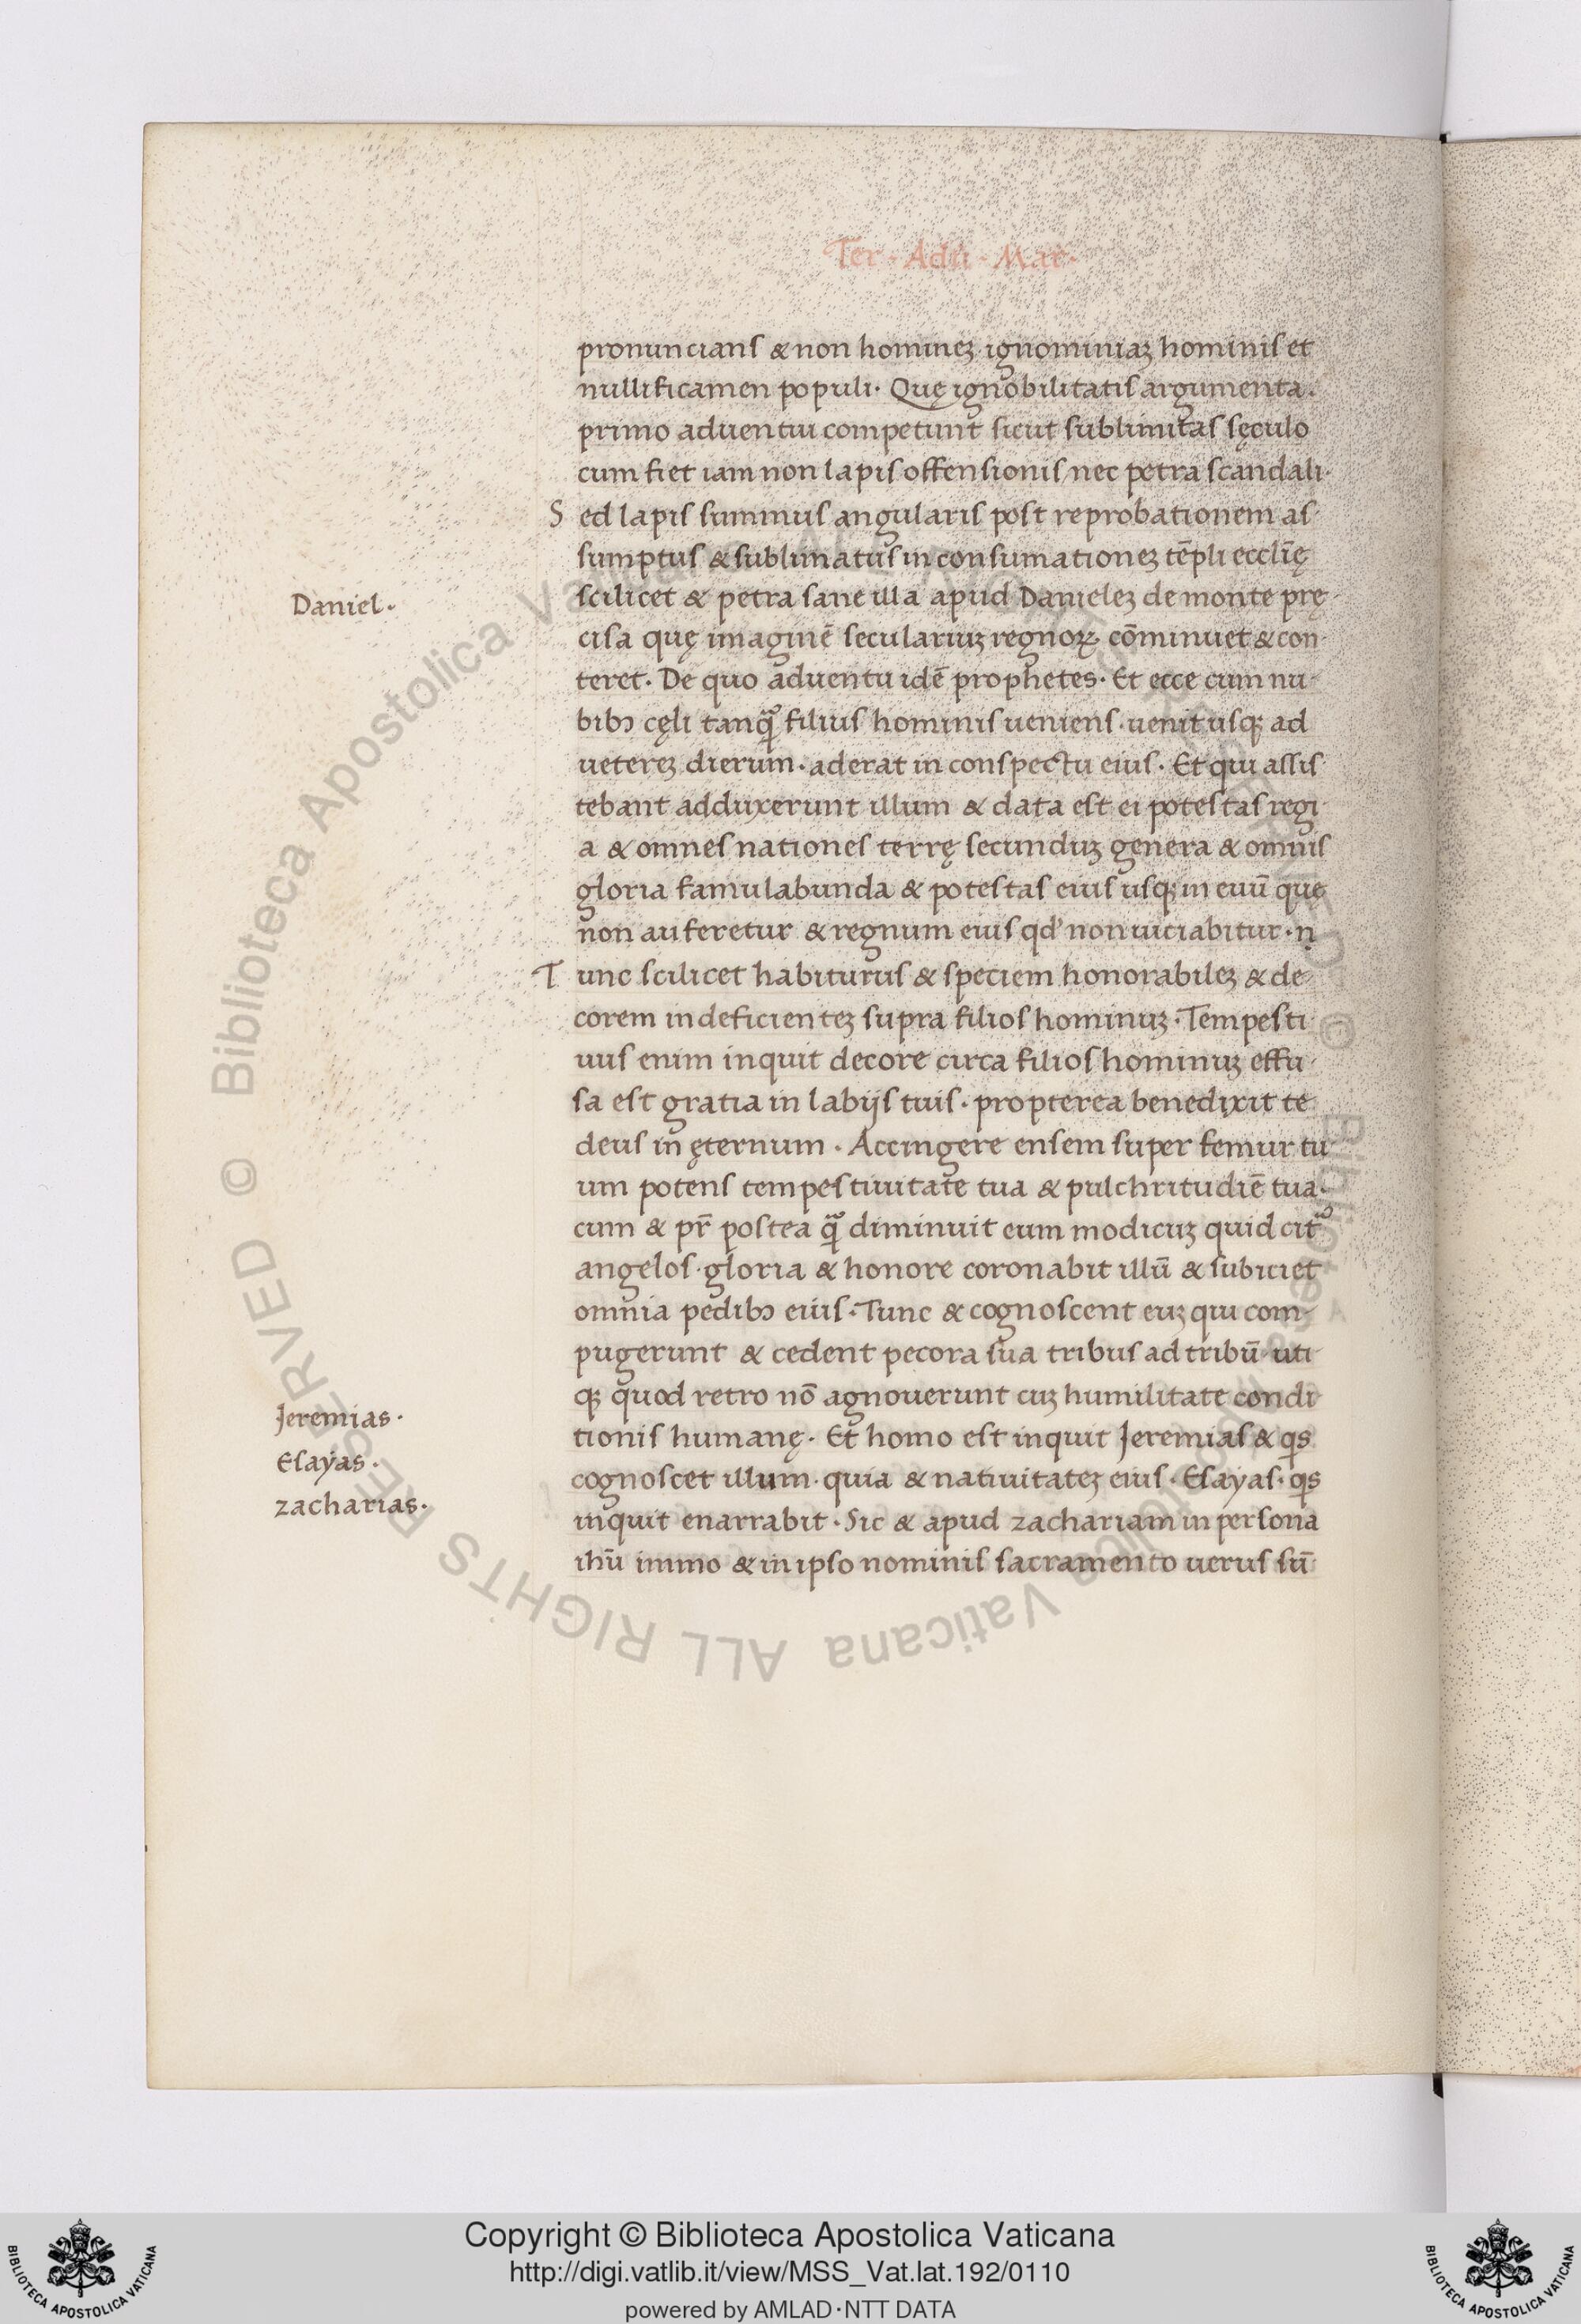 Ter · Adũ · Mar̃ ·
pronuncians & non homineʒ ignominiaʒ hominis et
nullificamen populi · Quę ignobilitatis argumenta ·
primo aduentui competunt sicut sublimitas sęculo
cum fiet iam non lapis offensionis / nec petra scandali ·
S ed lapis summus angularis post reprobationem as-
sumptus & sublimatus in consumationeʒ tẽpli ecclĩę
Daniel ·
scilicet & petra sane illa apud Danieleʒ de monte prę-
cisa quę imaginẽ seculariuʒ regnoꝝ cõminuet & con-
teret · De quo aduentu idẽ prophetes · Et ecce cum nu-
bibɔ cęli tanqͣꝫ filius hominis ueniens · uenit usqꝫ ad
uetereʒ dierum · aderat in conspectu eius · Et qui assis
tebant adduxerunt illum & data est ei potestas regi-
a & omnes nationes terrę secunduʒ genera & omnis
gloria famulabunda & potestas eius usqꝫ in euũ que
non auferetur & regnum eius qd' non uiciabitur · ņ
T unc scilicet habiturus & speciem honorabileʒ & de-
corem indeficienteʒ supra filios hominuʒ · Tempesti-
uus enim inquit decore circa filios hominuʒ effu-
sa est gratia in labijs tuis · propterea benedixit te
deus in ęternum · Accingere ensem super femur tu-
um potens tempestiuitate tua & pulchritudiẽ tua ·
cum & pr̃ postea qͣꝫ diminuit eum modicuʒ quid citͣ
angelos · gloria & honore coronabit illũ & subiciet
omnia pedibɔ eius · Tunc & cognoscent euʒ qui com-
pugerunt & cedent pecora sua tribus ad tribũ · uti-
qꝫ quod retro nõ agnouerunt cuʒ humilitate condi-
Jeremias ·
tionis humanę · Et homo est inquit Jeremias & qis
Esayas ·
cognoscet illum · quia & natiuitateʒ eius · Esayas · qis
zacharias ·
inquit enarrabit · Sic & apud zachariam in persona
ihũ immo & in ipso nominis sacramento uerus sũ-
Copyright © Biblioteca Apostolica Vaticana
http://digi.vatlib.it/view/MSS_Vat.lat.192/0110
powered by AMLAD·NTT DATA
BIBLIOTECA APOSTOLICA VATICANA
BIBLIOTECA APOSTOLICA VATICANA
© Biblioteca Apostolica Vaticana ALL RIGHTS RESERVED
© Biblioteca Apostolica Vaticana ALL RIGHTS RESERVED